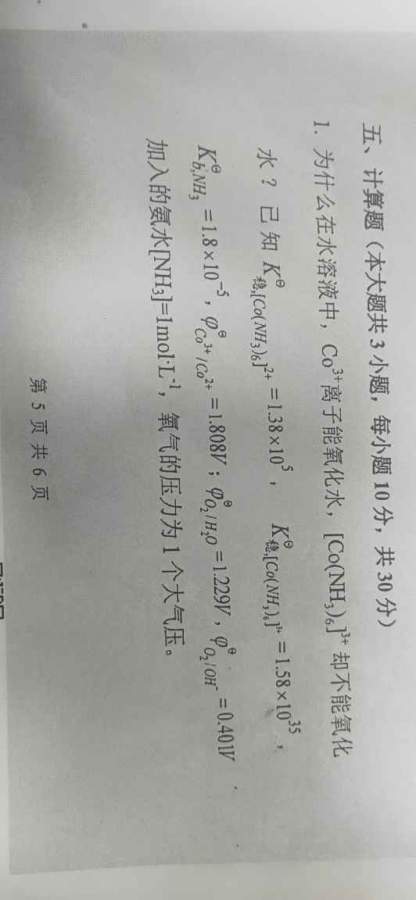 五、计算题（本大题共 3 小题，每小题 10 分，共 30 分）
1. 为什么在水溶液中，Co³⁺离子能氧化水，[Co(NH₃)₆]³⁺ 却不能氧化
水？已知 K^θ_稳,[Co(NH₃)₆]²⁺ =1.38×10⁵， K^θ_稳,[Co(NH₃)₆]³⁺ =1.58×10³⁵，
K^θ_b,NH₃ =1.8×10⁻⁵，φ^θ_Co³⁺/Co²⁺ =1.808V；φ^θ_O₂/H₂O =1.229V，φ^θ_O₂/OH⁻ =0.401V
加入的氨水[NH₃]=1mol·L⁻¹，氧气的压力为 1 个大气压。
第 5 页 共 6 页